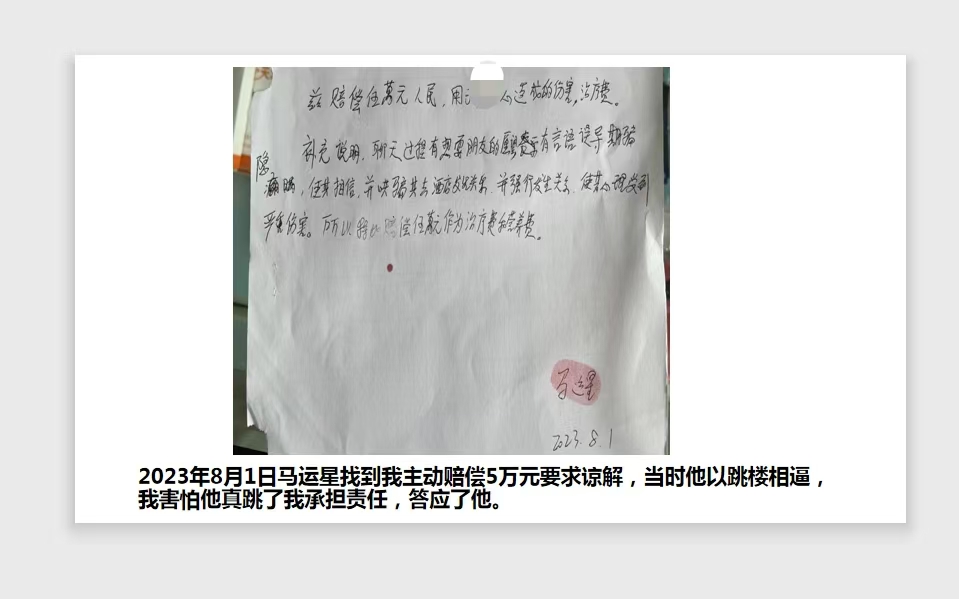 兹赔偿伍萬元人民,用 造成的伤害,治疗费。
补充说明,聊天过程有想要朋友的意 有言語误导 期骗
隐瞒,使其相信,并哄骗其去酒店发生关系,并强行发生关系,使其心理受到
严重伤害。所以 赔偿伍萬元作为治疗费和营养费。
马运星
2023.8.1
2023年8月1日马运星找到我主动赔偿5万元要求谅解,当时他以跳楼相逼,
我害怕他真跳了我承担责任,答应了他。